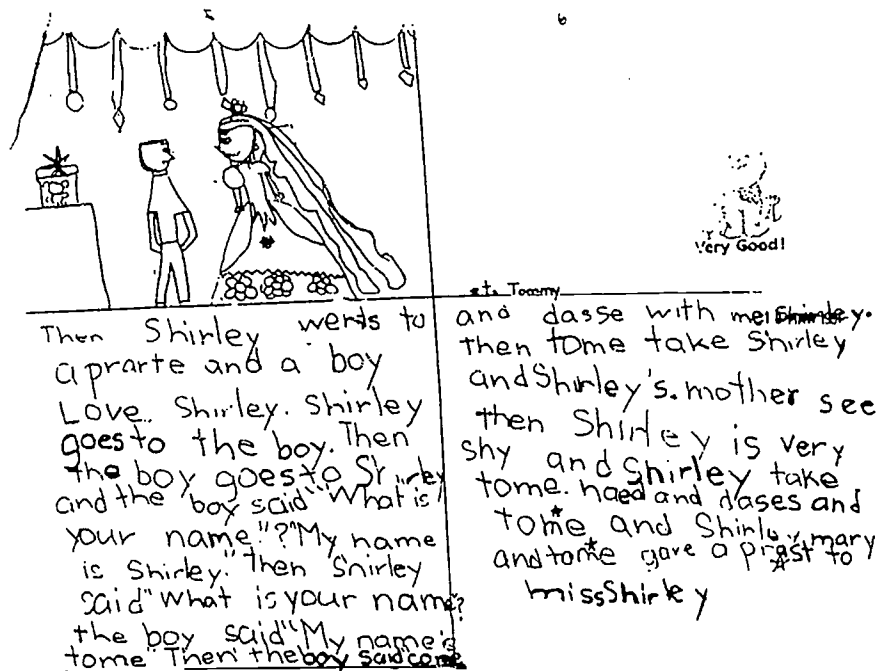 5
Then Shirley werts to
a prarte and a boy
Love. Shirley. Shirley
goes to the boy. Then
the boy goes to Shirley
and the boy said "What is
your name"? "My name
is Shirley." Then Shirley
said "What is your name?
the boy said "My name's
tome" Then the boy said "come
6
Very Good!
Tommy
and dasse with me Shirley.
then tome take Shirley
and Shirley's. mother see
then Shirley is very
shy and Shirley take
tome. haed and dases and
tome* and Shirley mary
and tome* gave a prast to
miss Shirley